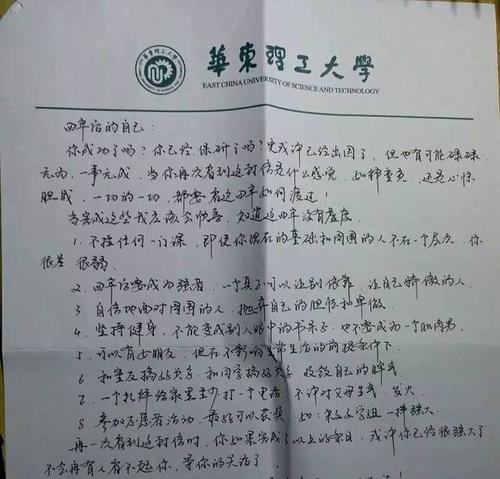 華東理工大學
EAST CHINA UNIVERSITY OF SCIENCE AND TECHNOLOGY
四年后的自己：
你成功了吗？你已经保研了吗？或许已经出国了，但也有可能碌碌
无为，一事无成，当你再次看到这封信是什么感觉，如释重负，还是心惊
胆战，一切的一切，都要看这四年如何渡过！
当完成这些我应该会快喜，知道这四年没有虚度
1、不挂任何一门课，即使你现在的基础和周围的人不在一个层次，你
很差，很弱。
2、四年后要成为强者，一个真正可以让别人依靠，让自己骄傲的人
3、自信地面对周围的人，抛弃自己的胆怯和卑微
4、坚持健身，不能变成别人眼中的书呆子，也不要成为一个肌肉男
5、可以有女朋友，但在不影响正常生活的前提条件下
6、和室友搞好关系，和同学搞好关系，收敛自己的脾气
7、一个礼拜给家里至少打一个电话，不许对父母生气，发火
8、参加志愿者活动，最好可以获奖，如：
再一次看到这封信时，你如果完成了以上的条目，或许你已经很强大了，
不会再有人看不起你，等你的关怀了